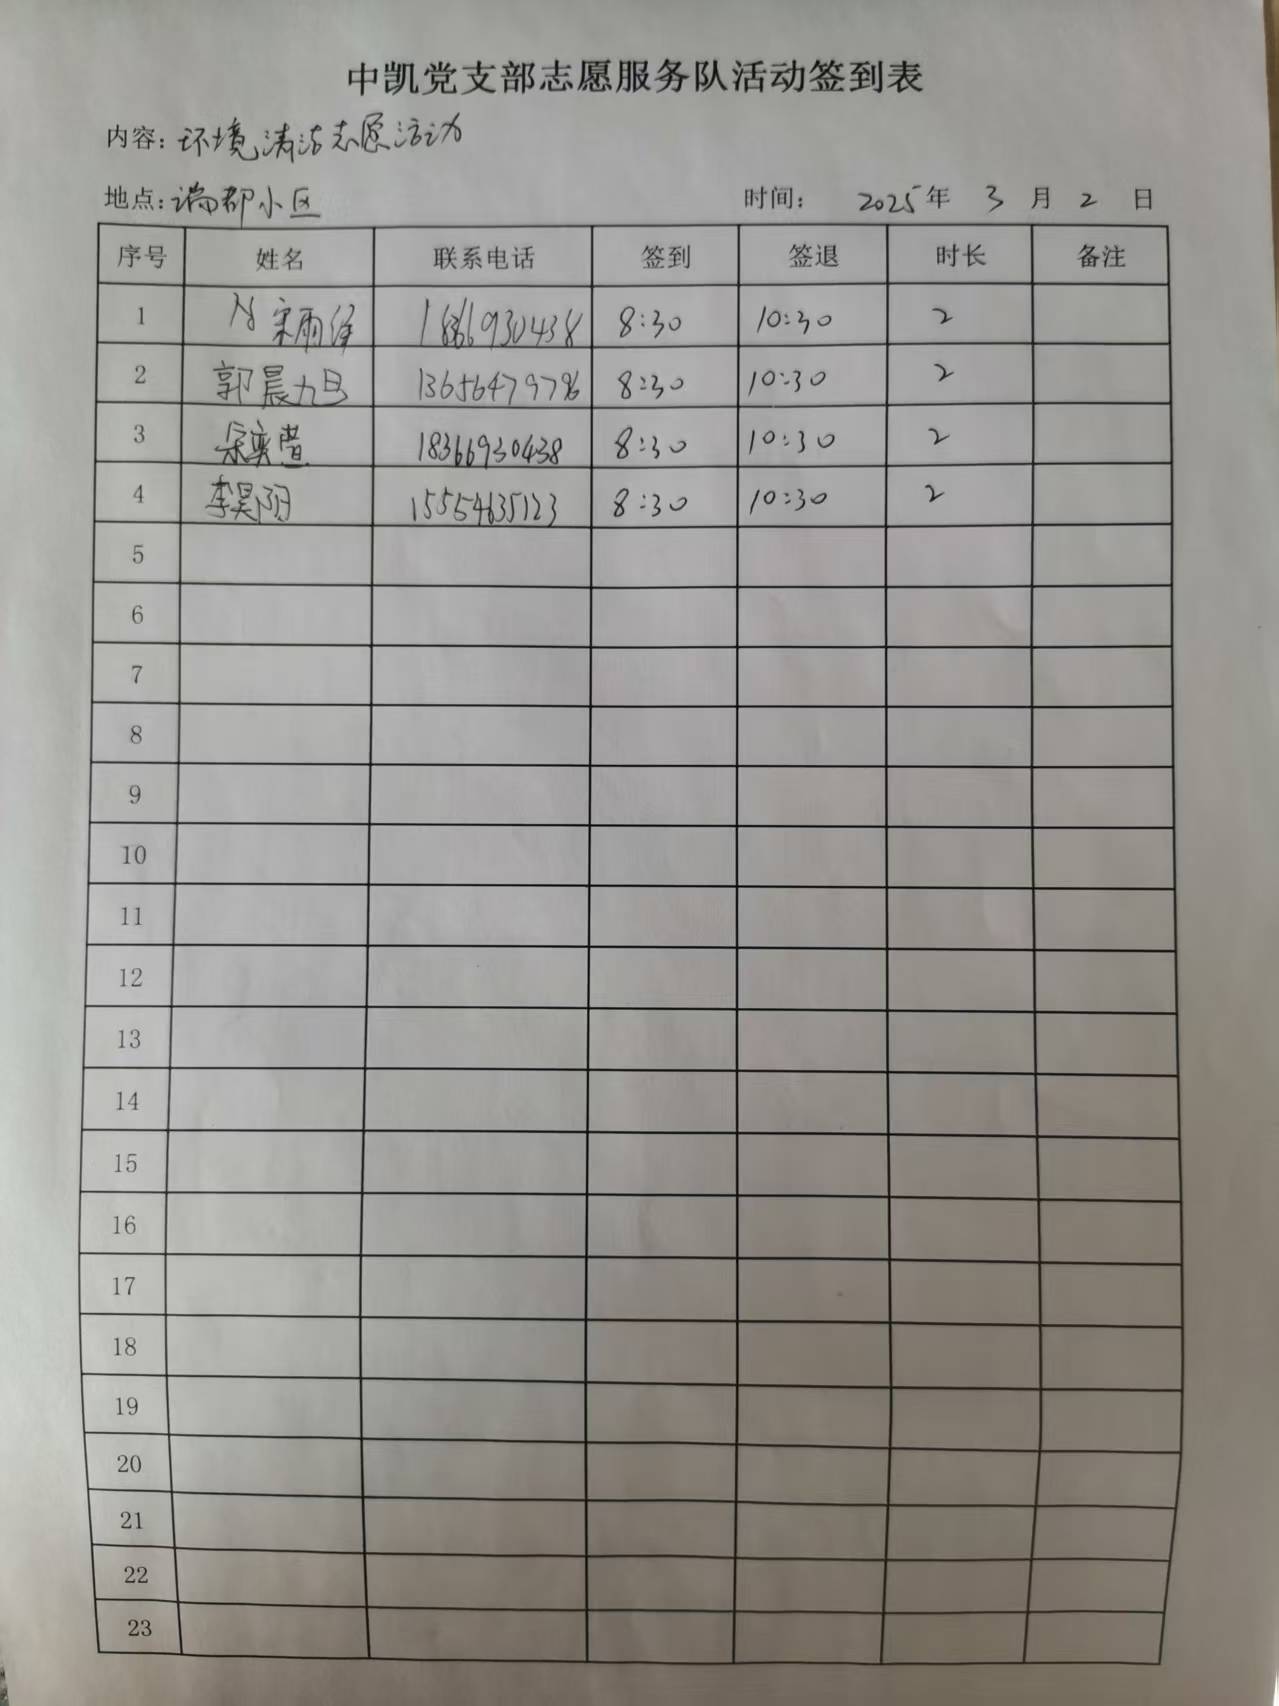 中凯党支部志愿服务队活动签到表
内容：环境清洁志愿活动
地点：瑞都小区 时间： 2025 年 3 月 2 日
序号 姓名 联系电话 签到 签退 时长 备注
1 宋雨 8:30 10:30 2
2 郭晨旭 13656479796 8:30 10:30 2
3 宋奕萱 18366930438 8:30 10:30 2
4 李昊阳 15554635123 8:30 10:30 2
5
6
7
8
9
10
11
12
13
14
15
16
17
18
19
20
21
22
23